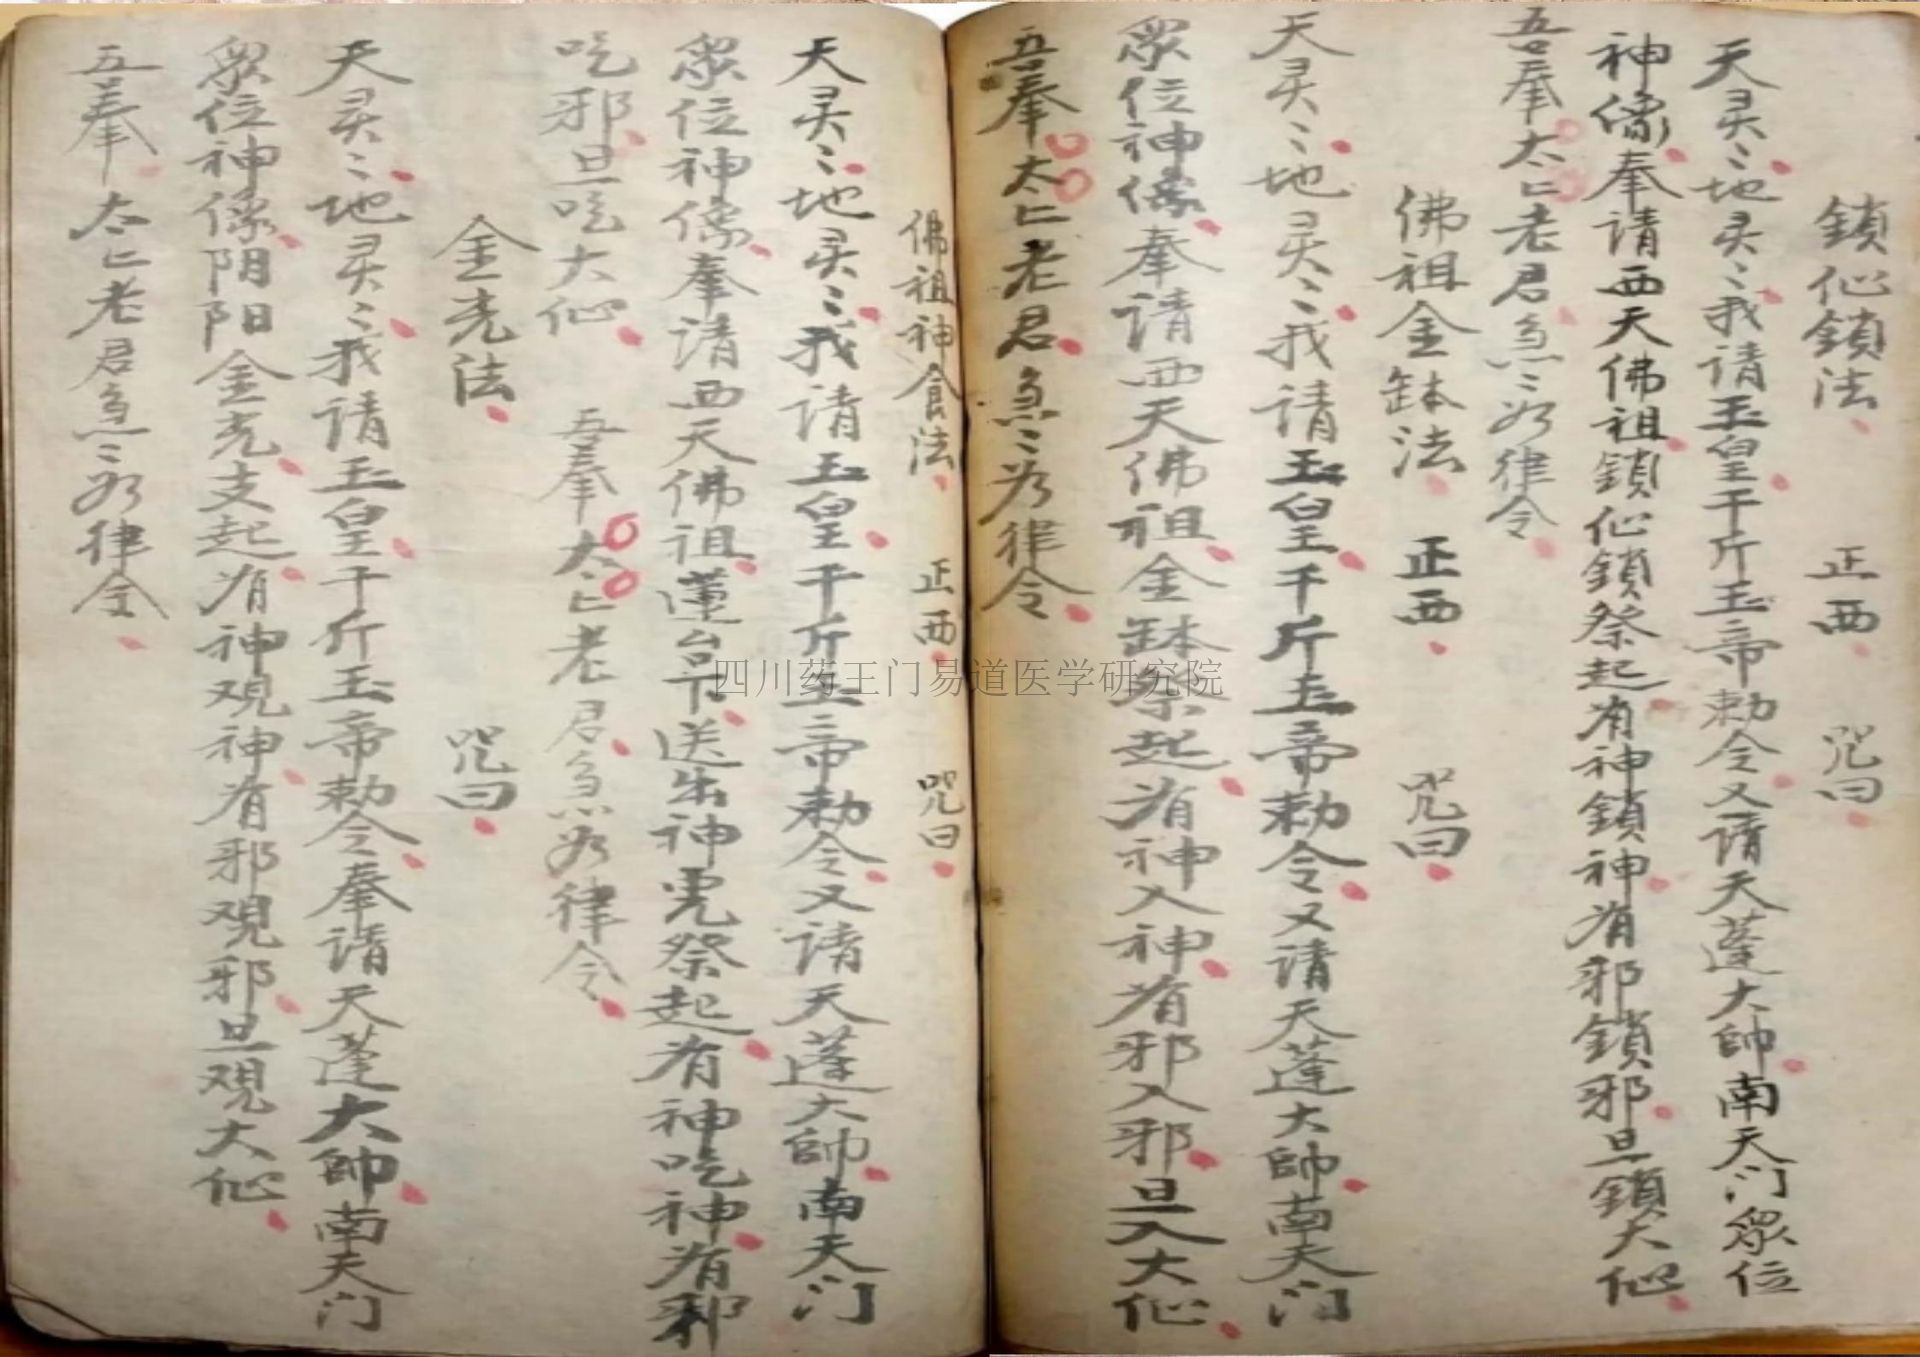 鎖仙鎖法 正西 咒曰
天灵〻地灵〻我请玉皇千斤玉帝勅令又请天蓬大帥南天门眾位
神像奉请西天佛祖鎖仙鎖祭起有神鎖神有邪鎖邪旦鎖大仙
吾奉太上老君急〻如律令
佛祖金鉢法 正西 咒曰
天灵〻地灵〻我请玉皇千斤玉帝勅令又请天蓬大帥南天门
眾位神像奉请西天佛祖金鉢祭起有神入神有邪入邪旦入大仙
吾奉太上老君急〻如律令
佛祖神食法 正西 咒曰
天灵〻地灵〻我请玉皇千斤玉帝勅令又请天蓬大帥南天门
眾位神像奉请西天佛祖蓮台下送出神祭起有神吃神有邪
吃邪旦吃大仙 吾奉太上老君急如律令
金光法 咒曰
天灵〻地灵〻我请玉皇千斤玉帝勅令奉请天蓬大帥南天门
眾位神像阴阳金光支起有神观神有邪观邪旦观大仙
五奉太上老君急〻如律令
四川药王门易道医学研究院